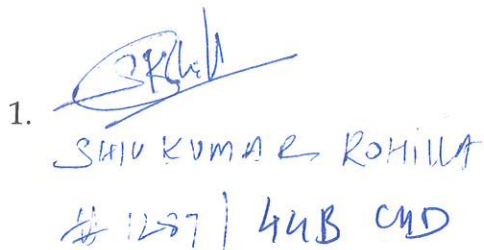 1.
SHIV KUMAR ROHILLA
# 1287 / 44B CHD